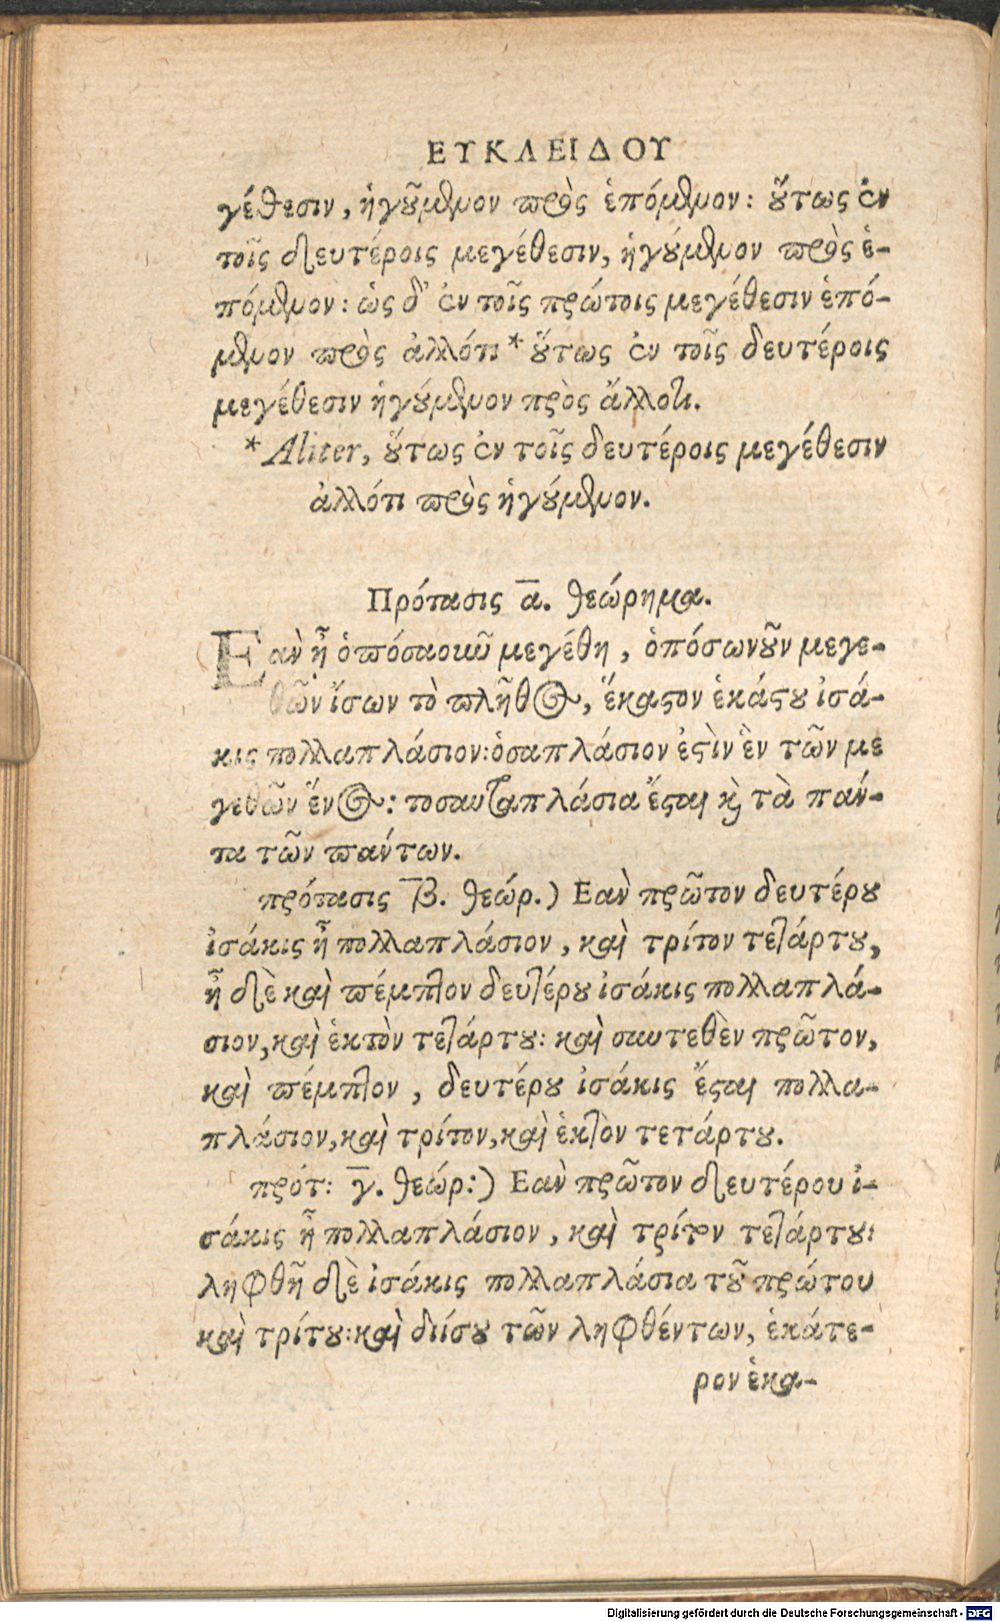 ΕΥΚΛΕΙΔΟΥ
γέθεσιν, ἡγούμενον πρὸς ἑπόμενον: οὕτως ἐν
τοῖς δευτέροις μεγέθεσιν, ἡγούμενον πρὸς ἑ-
πόμενον: ὡς δ' ἐν τοῖς πρώτοις μεγέθεσιν ἑπό-
μενον πρὸς ἀλλότι * οὕτως ἐν τοῖς δευτέροις
μεγέθεσιν ἡγούμενον πρὸς ἄλλοτι.
* Aliter, οὕτως ἐν τοῖς δευτέροις μεγέθεσιν
ἀλλότι πρὸς ἡγούμενον.
Πρότασις α. θεώρημα.
Εαν ᾖ ὁπόσαοιωῦ μεγέθη, ὁπόσωνοῦν μεγε-
θῶν ἴσων τὸ πλῆθος, ἕκαστον ἑκάστου ἰσά-
κις πολλαπλάσιον: ὁσαπλάσιον ἐστὶν ἓν τῶν με
γεθῶν ἕνος: τοσαυταπλάσια ἔσται καὶ τὰ πάν-
τα τῶν πάντων.
πρότασις β. θεώρ.) Εαν πρῶτον δευτέρου
ἰσάκις ᾖ πολλαπλάσιον, καὶ τρίτον τετάρτου,
ᾖ δὲ καὶ πέμπτον δευτέρου ἰσάκις πολλαπλά-
σιον, καὶ ἑκτὸν τετάρτου: καὶ συντεθὲν πρῶτον,
καὶ πέμπτον, δευτέρου ἰσάκις ἔσται πολλα-
πλάσιον, καὶ τρίτον, καὶ ἑκτὸν τετάρτου.
πρότ: γ. θεώρ:) Εαν πρῶτον δευτέρου ἰ-
σάκις ᾖ πολλαπλάσιον, καὶ τρίτον τετάρτου:
ληφθῇ δὲ ἰσάκις πολλαπλάσια τοῦ πρώτου
καὶ τρίτου: καὶ διίσου τῶν ληφθέντων, ἑκάτε-
ρον ἑκα-
Digitalisierung gefördert durch die Deutsche Forschungsgemeinschaft - DFG